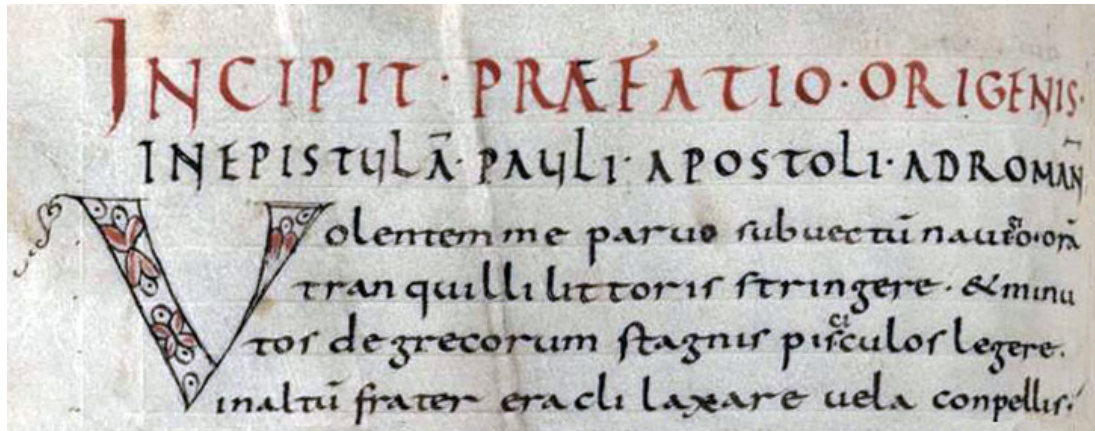 INCIPIT · PRÆFATIO · ORIGENIS ·
IN EPISTULĀ · PAULI · APOSTOLI · AD ROMAÑ
Volentem me paruo subuectū orā
tranquilli littoris stringere · & minu
tos de grecorum stagnis piscículos legere.
in altū frater eracli laxare uela conpellis ·